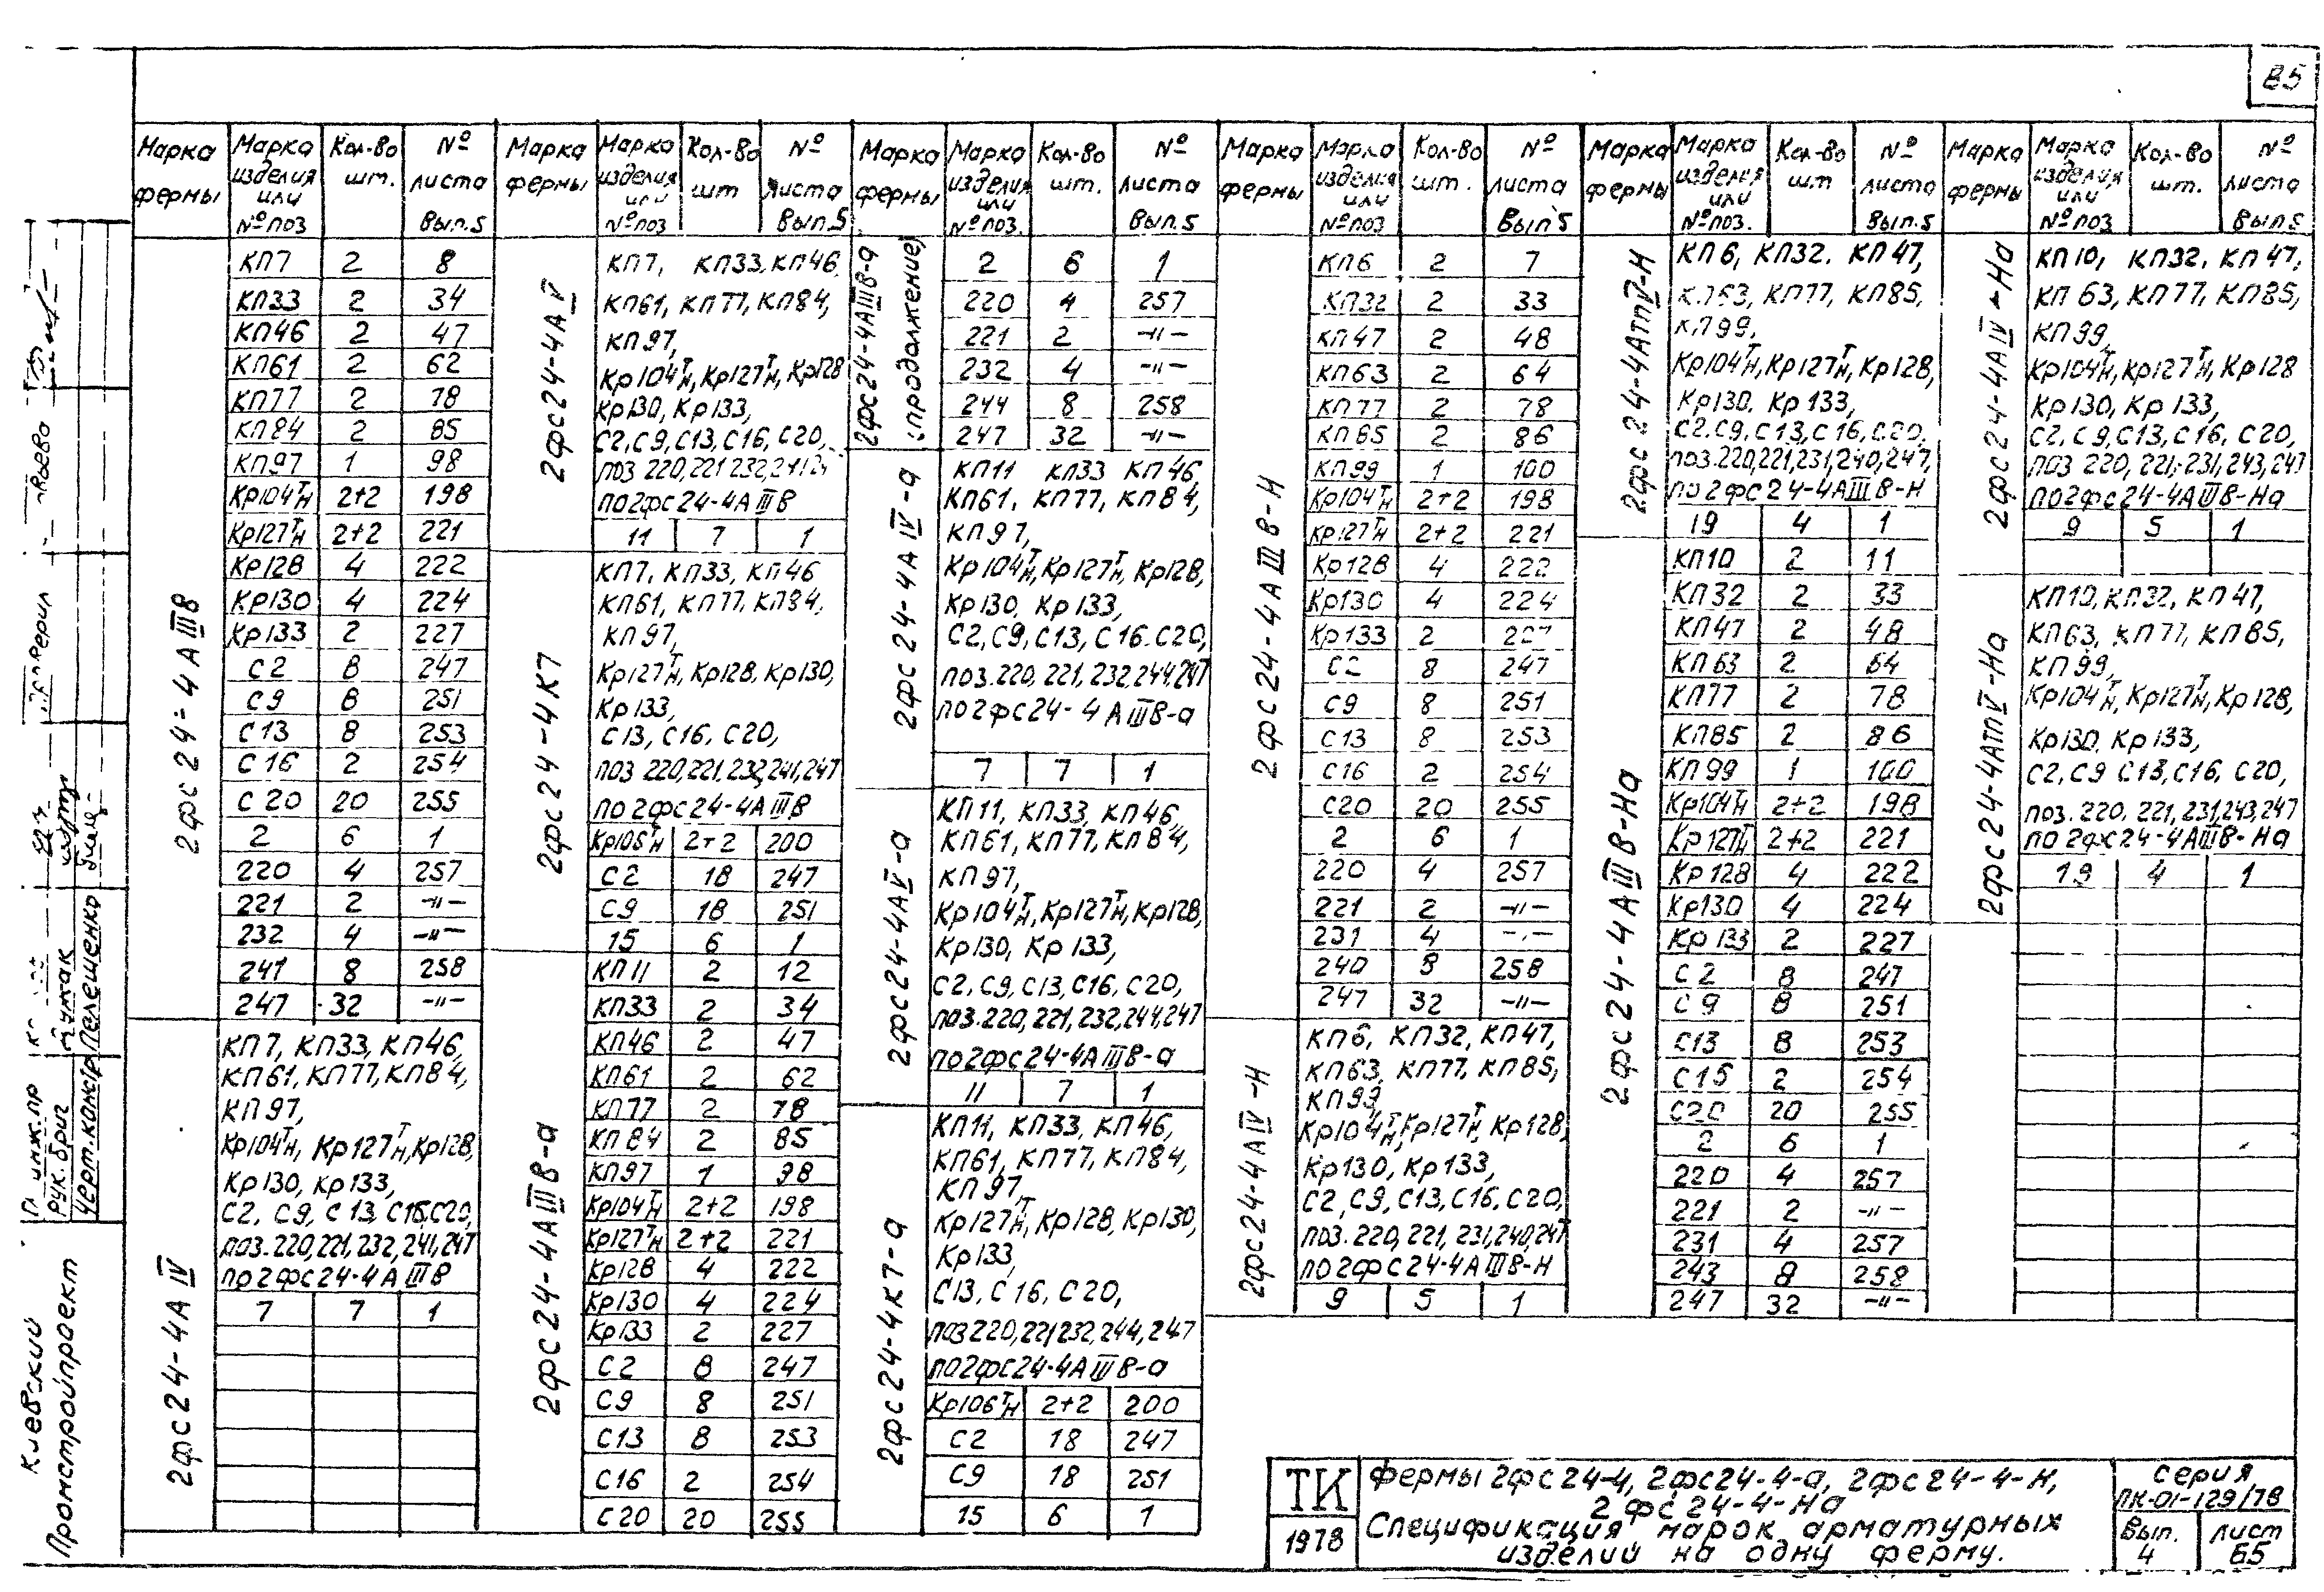 85
Марка фермы | Марка изделия или № поз | Кол-во шт. | № листа Вып.5
2фс24-4АIIIв
КП7 2 8
КП33 2 34
КП46 2 47
КП61 2 62
КП77 2 78
КП84 2 85
КП97 1 98
Кр104Т/Н 2+2 198
Кр127Т/Н 2+2 221
Кр128 4 222
Кр130 4 224
Кр133 2 227
С2 8 247
С9 8 251
С13 8 253
С16 2 254
С20 20 255
2 6 1
220 4 257
221 2 -"-
232 4 -"-
241 8 258
247 32 -"-
2фс24-4АIV
КП7, КП33, КП46,
КП61, КП77, КП84,
КП97,
Кр104Т/Н, Кр127Т/Н, Кр128,
Кр130, Кр133,
С2, С9, С13, С16, С20,
поз.220,221,232,241,247
по 2фс24-4АIIIв
7 7 1
Марка фермы | Марка изделия или № поз | Кол-во шт | № листа Вып.5
2фс24-4АV
КП7, КП33, КП46,
КП61, КП77, КП84,
КП97,
Кр104Т/Н, Кр127Т/Н, Кр128
Кр130, Кр133,
С2, С9, С13, С16, С20,
поз 220,221 232,
по2фс24-4АIIIв
11 7 1
2фс24-4К7
КП7, КП33, КП46
КП61, КП77, КП84,
КП97,
Кр127Т/Н, Кр128, Кр130,
Кр133,
С13, С16, С20,
поз 220,221,232,241,247
по 2фс24-4АIIIв
Кр106Т/Н 2+2 200
С2 18 247
С9 18 251
15 6 1
2фс24-4АIIIв-а
КП11 2 12
КП33 2 34
КП46 2 47
КП61 2 62
КП77 2 78
КП84 2 85
КП97 1 98
Кр104Т/Н 2+2 198
Кр127Т/Н 2+2 221
Кр128 4 222
Кр130 4 224
Кр133 2 227
С2 8 247
С9 8 251
С13 8 253
С16 2 254
С20 20 255
Марка фермы | Марка изделия или № поз. | Кол-во шт. | № листа Вып.5
2фс24-4АIIIв-а (продолжение)
2 6 1
220 4 257
221 2 -"-
232 4 -"-
244 8 258
247 32 -"-
2фс24-4АIV-а
КП11 КП33 КП46
КП61, КП77, КП84,
КП97,
Кр104Т/Н, Кр127Т/Н, Кр128,
Кр130, Кр133,
С2, С9, С13, С16. С20,
поз.220, 221, 232,244,247
по 2фс24-4АIIIв-а
7 7 1
2фс24-4АV-а
КП11, КП33, КП46,
КП61, КП77, КП84,
КП97,
Кр104Т/Н, Кр127Т/Н, Кр128,
Кр130, Кр133,
С2, С9, С13, С16, С20,
поз.220, 221, 232, 244,247
по2фс24-4АIIIв-а
11 7 1
2фс24-4К7-а
КП11, КП33, КП46,
КП61, КП77, КП84,
КП97,
Кр127Т/Н, Кр128, Кр130,
Кр133,
С13, С16, С20,
поз220,221232,244,247
по2фс24-4АIIIв-а
Кр106Т/Н 2+2 200
С2 18 247
С9 18 251
15 6 1
Марка фермы | Марка изделия или № поз | Кол-во шт. | № листа Вып 5
2фс24-4АIIIв-Н
КП6 2 7
КП32 2 33
КП47 2 48
КП63 2 64
КП77 2 78
КП85 2 86
КП99 1 100
Кр104Т/Н 2+2 198
Кр127Т/Н 2+2 221
Кр128 4 222
Кр130 4 224
Кр133 2 227
С2 8 247
С9 8 251
С13 8 253
С16 2 254
С20 20 255
2 6 1
220 4 257
221 2 -"-
231 4 -"-
240 8 258
247 32 -"-
2фс24-4АIV-Н
КП6, КП32, КП47,
КП63, КП77, КП85,
КП99
Кр104Т/Н, Кр127Т/Н, Кр128,
Кр130, Кр133,
С2, С9, С13, С16, С20,
поз.220, 221, 231,240,247
по2фс24-4АIIIв-Н
9 5 1
Марка фермы | Марка изделия или № поз. | Кол-во шт | № листа Вып.5
2фс24-4АтпV-Н
КП6, КП32. КП47,
КП63, КП77, КП85,
КП99,
Кр104Т/Н, Кр127Т/Н, Кр128,
Кр130, Кр133,
С2, С9, С13, С16, С20,
поз.220,221,231,240,247,
по2фс24-4АIIIв-Н
19 4 1
2фс24-4АIIIв-На
КП10 2 11
КП32 2 33
КП47 2 48
КП63 2 64
КП77 2 78
КП85 2 86
КП99 1 100
Кр104Т/Н 2+2 198
Кр127Т/Н 2+2 221
Кр128 4 222
Кр130 4 224
Кр133 2 227
С2 8 247
С9 8 251
С13 8 253
С15 2 254
С20 20 255
2 6 1
220 4 257
221 2 -"-
231 4 257
243 8 258
247 32 -"-
Марка фермы | Марка изделия или № поз | Кол-во шт. | № листа Вып.5
2фс24-4АIV-На
КП10, КП32, КП47,
КП63, КП77, КП85,
КП99,
Кр104Т/Н, Кр127Т/Н, Кр128
Кр130, Кр133,
С2, С9, С13, С16, С20,
поз 220, 221, 231, 243, 247
по2фс24-4АIIIв-На
9 5 1
2фс24-4АтпV-На
КП10, КП32, КП47,
КП63, КП77, КП85,
КП99,
Кр104Т/Н, Кр127Т/Н, Кр128,
Кр130, Кр133,
С2, С9 С13, С16, С20,
поз.220, 221, 231,243,247
по 2фс24-4АIIIв-На
19 4 1
Киевский
Промстройпроект
инж.пр
Рук.бриг
Черт.констр
Пелешенко
ТК
1978
фермы 2фс24-4, 2фс24-4-а, 2фс24-4-Н,
2фс24-4-На
Спецификация марок арматурных
изделий на одну ферму.
серия
ПК-01-129/78
Вып. 4
лист 65